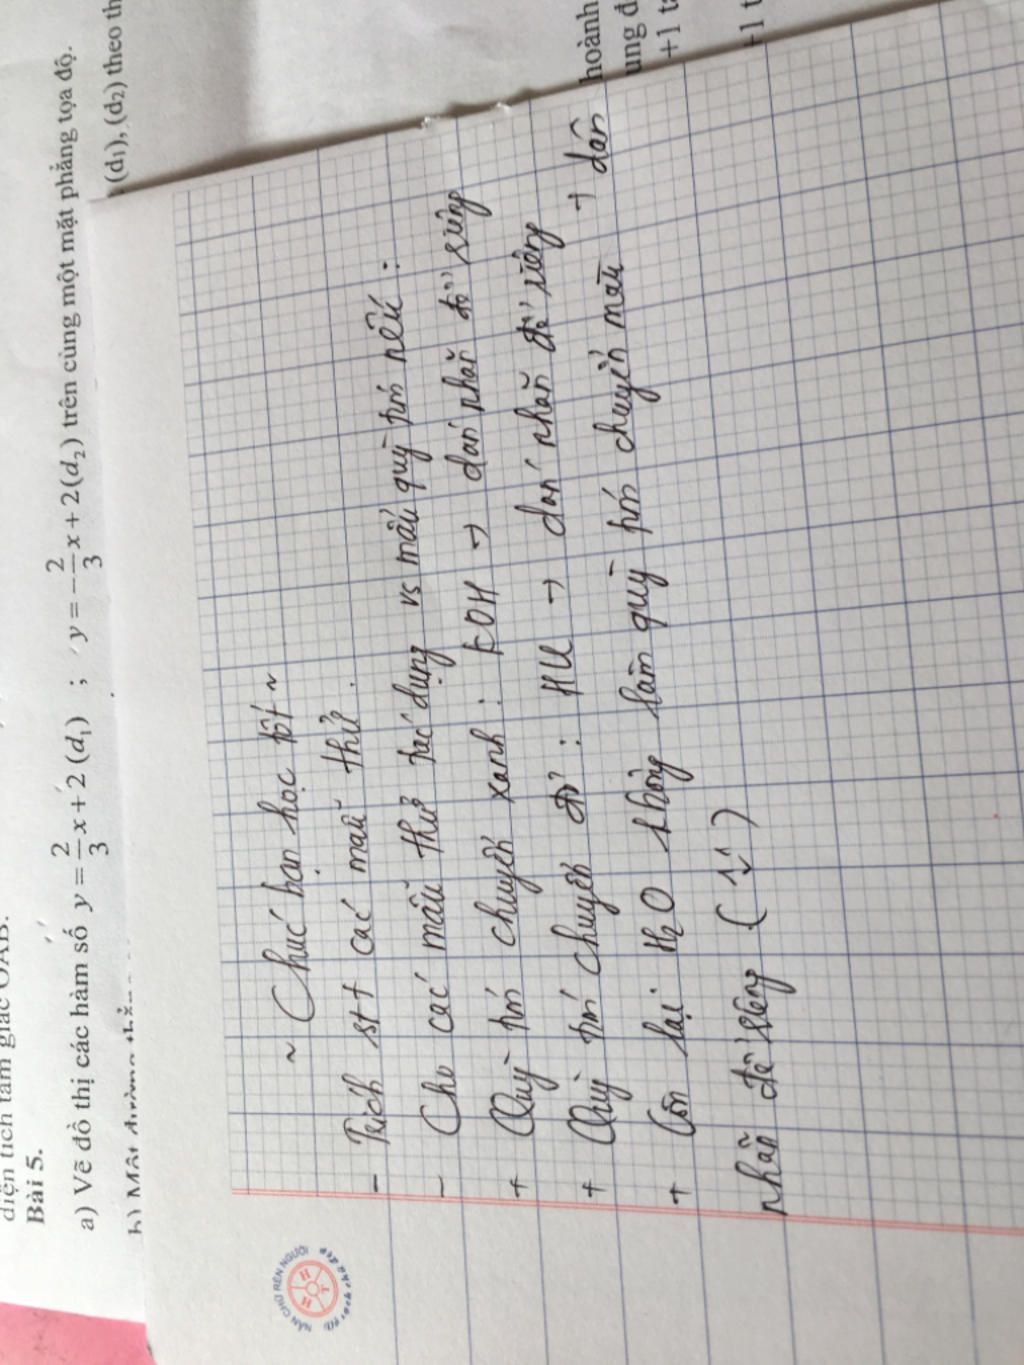 diện tích tam giác OAB.
Bài 5.
a) Vẽ đồ thị các hàm số y = 2/3 x + 2 (d₁) ; y = -2/3 x + 2 (d₂) trên cùng một mặt phẳng tọa độ.
b) Một (d₁), (d₂) theo th
hoành
ung đ
+1 t
+1 t
~ Chúc bạn học tốt ~
- Trích st t các mẫu thử.
- Cho các mẫu thử tác dụng vs mẩu quỳ tím nếu :
+ Quỳ tím chuyển xanh : KOH → dán nhãn để riêng
+ Quỳ tím chuyển đỏ : HCl → dán nhãn để riêng
+ Còn lại H₂O không làm quỳ tím chuyển màu → dán
nhãn để riêng ( )
NẮN CHỮ RÈN NGƯỜI
HTH